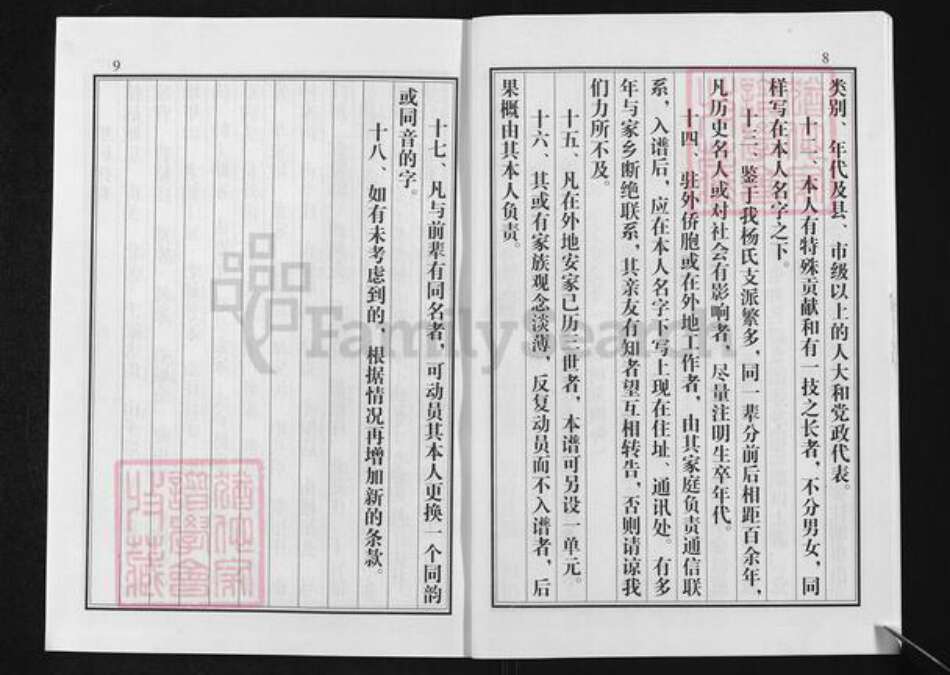 8
类别、年代及县、市级以上的人大和党政代表。
十二、本人有特殊贡献和有一技之长者，不分男女，同
样写在本人名字之下。
十三、鉴于我杨氏支派繁多，同一辈分前后相距百余年，
凡历史名人或对社会有影响者，尽量注明生卒年代。
十四、驻外侨胞或在外地工作者，由其家庭负责通信联
系，入谱后，应在本人名字下写上现在住址、通讯处。有多
年与家乡断绝联系，其亲友有知者望互相转告，否则请谅我
们力所不及。
十五、凡在外地安家已历三世者，本谱可另设一单元。
十六、其或有家族观念淡薄，反复动员而不入谱者，后
果概由其本人负责。
9
十七、凡与前辈有同名者，可动员其本人更换一个同韵
或同音的字。
十八、如有未考虑到的，根据情况再增加新的条款。
FamilySearch